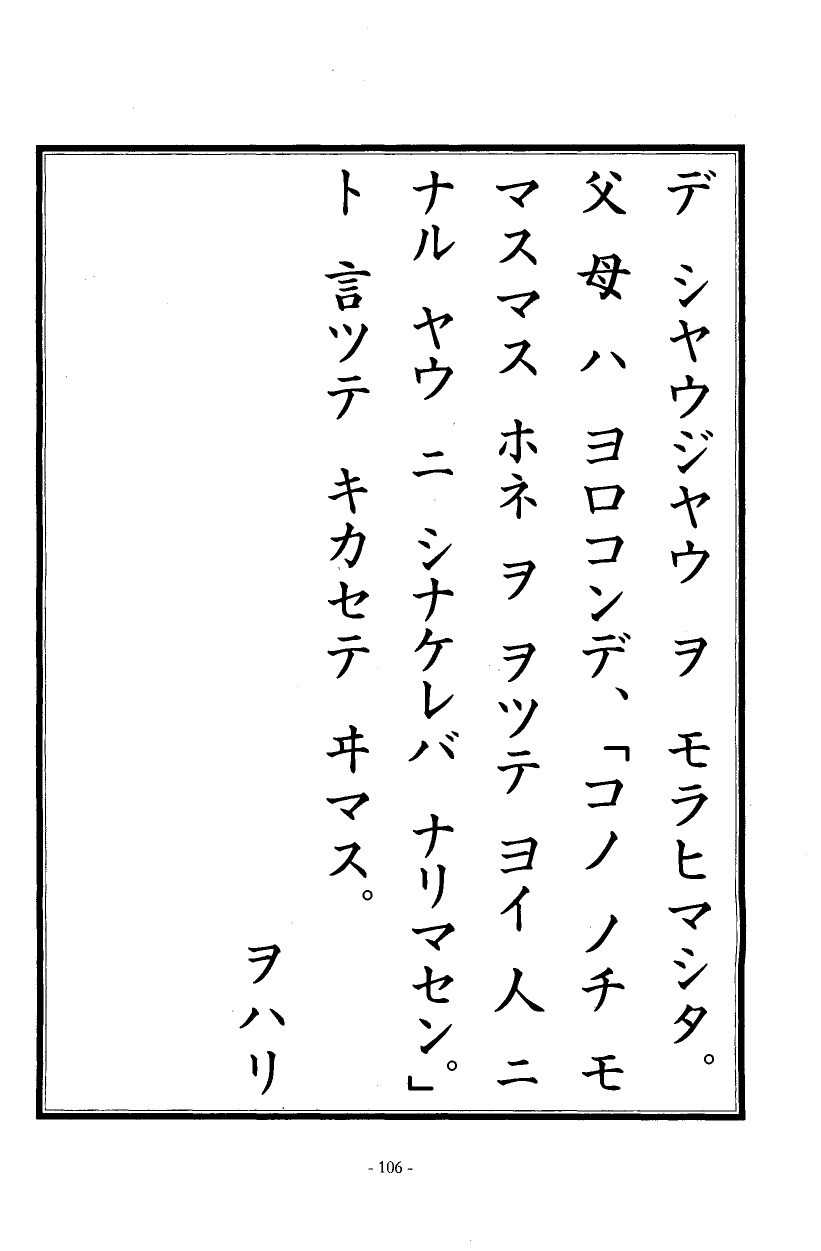 デ シヤウジヤウ ヲ モラヒマシタ。
父 母 ハ ヨロコンデ、「コノ ノチ モ
マスマス ホネ ヲ ヲツテ ヨイ 人 ニ
ナル ヤウ ニ シナケレバ ナリマセン。」
ト 言ツテ キカセテ ヰマス。
ヲハリ
- 106 -